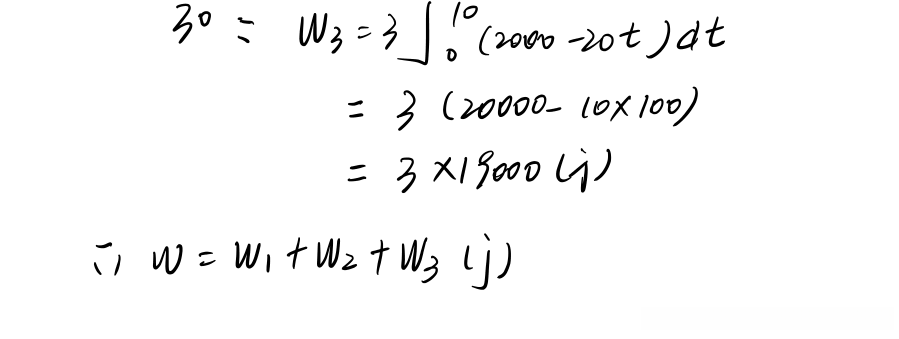 3° = W₃ = 3∫₀¹⁰(2000-20t)dt
= 3(20000-10×100)
= 3×19000(j)
∴ W = W₁+W₂+W₃ (j)